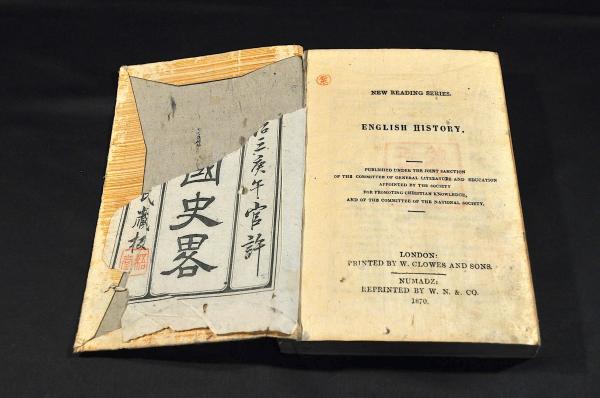 治三庚午官許
國史畧
氏藏板
NEW READING SERIES.
ENGLISH HISTORY.
PUBLISHED UNDER THE JOINT SANCTION
OF THE COMMITTEE OF GENERAL LITERATURE AND EDUCATION
APPOINTED BY THE SOCIETY
FOR PROMOTING CHRISTIAN KNOWLEDGE,
AND OF THE COMMITTEE OF THE NATIONAL SOCIETY.
LONDON:
PRINTED BY W. CLOWES AND SONS.
NUMADZ:
REPRINTED BY W. N. & CO.
1870.